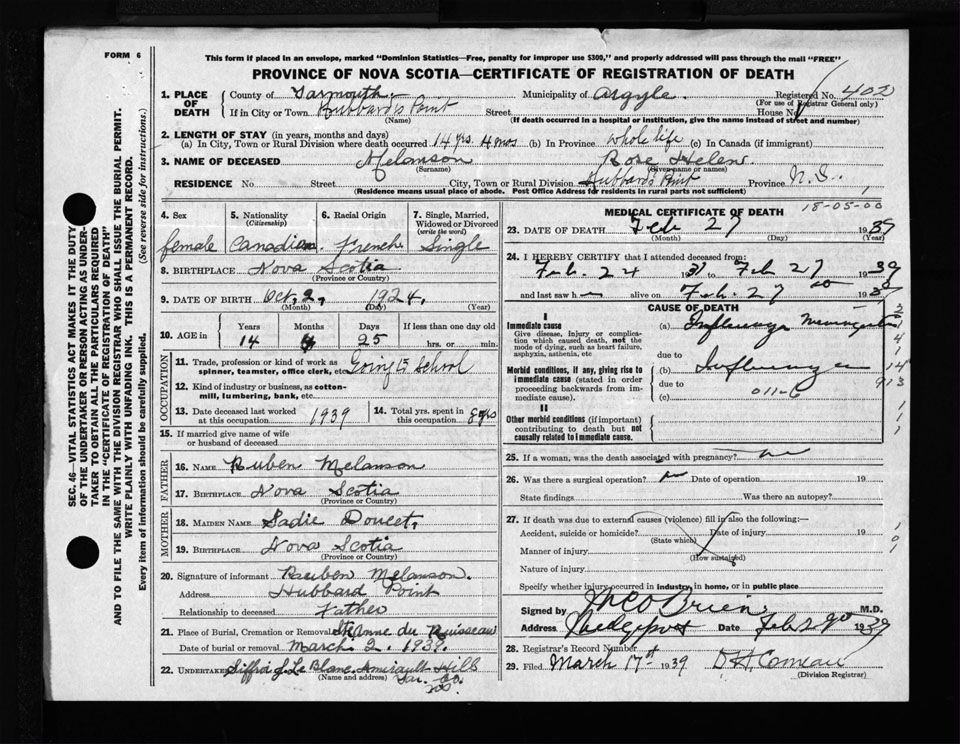 FORM 6
This form if placed in an envelope, marked "Dominion Statistics—Free, penalty for improper use $300," and properly addressed will pass through the mail "FREE"
PROVINCE OF NOVA SCOTIA—CERTIFICATE OF REGISTRATION OF DEATH
SEC. 46—VITAL STATISTICS ACT MAKES IT THE DUTY
OF THE UNDERTAKER OR PERSON ACTING AS UNDER-
TAKER TO OBTAIN ALL THE PARTICULARS REQUIRED
IN THE "CERTIFICATE OF REGISTRATION OF DEATH"
AND TO FILE THE SAME WITH THE DIVISION REGISTRAR WHO SHALL ISSUE THE BURIAL PERMIT.
WRITE PLAINLY WITH UNFADING INK. THIS IS A PERMANENT RECORD.
Every item of information should be carefully supplied. (See reverse side for instructions.)
1. PLACE OF DEATH
County of Yarmouth Municipality of Argyle. Registered No. 402
(For use of Registrar General only)
If in City or Town Hubbard's Point Street House No.
(Name) (If death occurred in a hospital or institution, give the name instead of street and number)
2. LENGTH OF STAY (in years, months and days)
(a) In City, Town or Rural Division where death occurred 14 yrs. 4 mos (b) In Province whole life (c) In Canada (if immigrant)
3. NAME OF DECEASED Melanson Rose Helen
(Surname) (Given name or names)
RESIDENCE No. Street City, Town or Rural Division Hubbard's Point Province N.S.
(Residence means usual place of abode. Post Office Address for residents in rural parts not sufficient)
4. Sex female
5. Nationality (Citizenship) Canadian.
6. Racial Origin French
7. Single, Married, Widowed or Divorced (write the word) Single
8. BIRTHPLACE Nova Scotia
(Province or Country)
9. DATE OF BIRTH Oct. 2, 1924.
(Month) (Day) (Year)
10. AGE in Years 14 Months 4 Days 25 If less than one day hrs. or min.
OCCUPATION
11. Trade, profession or kind of work as spinner, teamster, office clerk, etc. Going to School
12. Kind of industry or business, as cotton-mill, lumbering, bank, etc.
13. Date deceased last worked at this occupation 1939
14. Total yrs. spent in this occupation 8 yrs
15. If married give name of wife or husband of deceased
FATHER
16. NAME Ruben Melanson
17. BIRTHPLACE Nova Scotia
(Province or Country)
MOTHER
18. MAIDEN NAME Sadie Doucet,
19. BIRTHPLACE Nova Scotia
(Province or Country)
20. Signature of informant Reuben Melanson.
Address Hubbard Point
Relationship to deceased Father
21. Place of Burial, Cremation or Removal Ste Anne du Ruisseau
Date of burial or removal March 2. 1939.
22. UNDERTAKER Siffroi J. Le Blanc Amirault Hill
(Name and address) Yar. Co.
N.S.
18-05-00
MEDICAL CERTIFICATE OF DEATH
23. DATE OF DEATH Feb 27 1939
(Month) (Day) (Year)
24. I HEREBY CERTIFY that I attended deceased from:
Feb. 24 1939 to Feb 27 1939
and last saw h alive on Feb. 27 1939
CAUSE OF DEATH
I
Immediate cause
Give disease, injury or complication which caused death, not the mode of dying, such as heart failure, asphyxia, asthenia, etc
(a) Influenza Meningitis
due to
Morbid conditions, if any, giving rise to immediate cause (stated in order proceeding backwards from immediate cause).
(b) Influenza
due to
(c) 011-6
II
Other morbid conditions (if important) contributing to death but not causally related to immediate cause.
25. If a woman, was the death associated with pregnancy? no
26. Was there a surgical operation? no Date of operation 19
State findings Was there an autopsy?
27. If death was due to external causes (violence) fill in also the following:—
Accident, suicide or homicide? Date of injury 19
(State which)
Manner of injury
(How sustained)
Nature of injury
Specify whether injury occurred in industry, in home, or in public place
Signed by M.D.
Address Wedgeport Date Feb 1939
28. Registrar's Record Number
29. Filed March 17th 1939 D H Comeau
(Division Registrar)